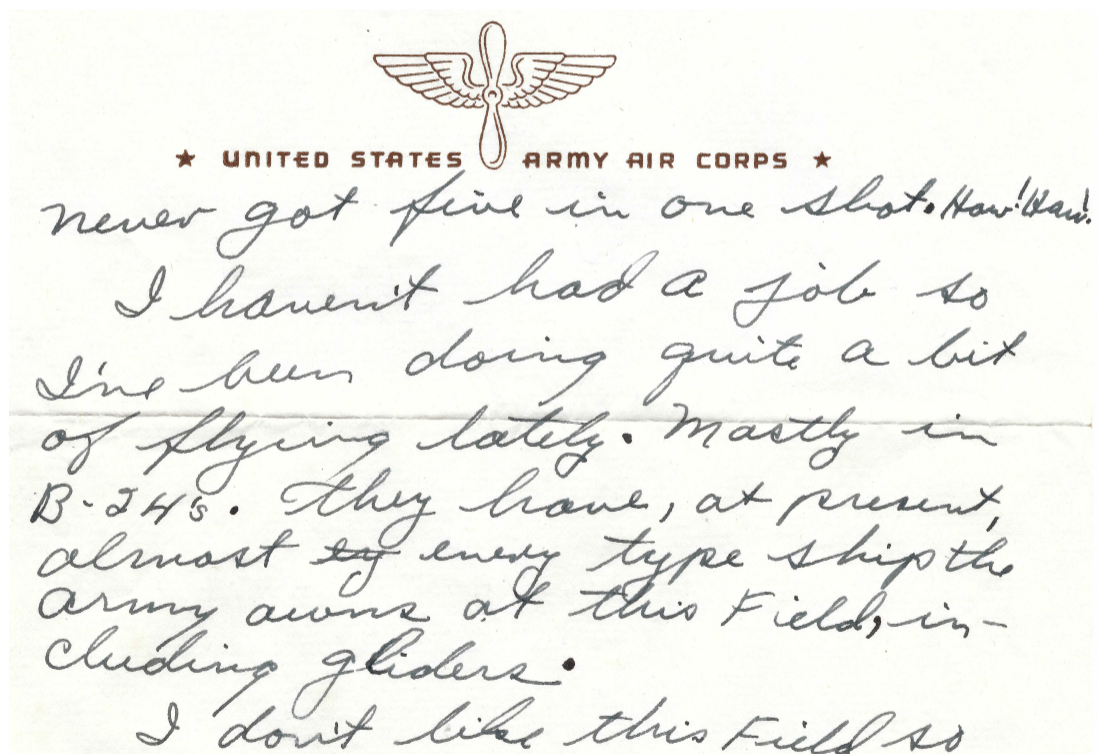 ★ UNITED STATES ARMY AIR CORPS ★
never got five in one shot. Haw! Haw!
I haven't had a job so
I've been doing quite a bit
of flying lately. Mostly in
B-24's. They have, at present,
almost ey every type ship the
army owns at this Field, in-
cluding gliders.
I don't like this Field so